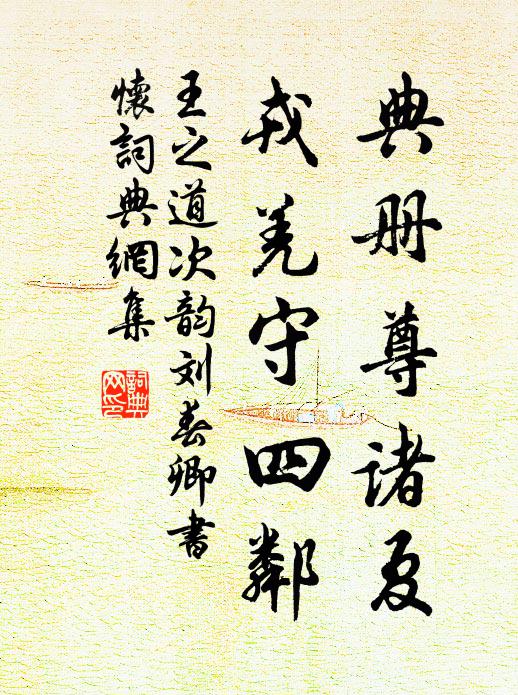 典册尊诸夏
戎羌守四鄰
王之道次韵刘春卿書
懷詞典網集
詞典
网印